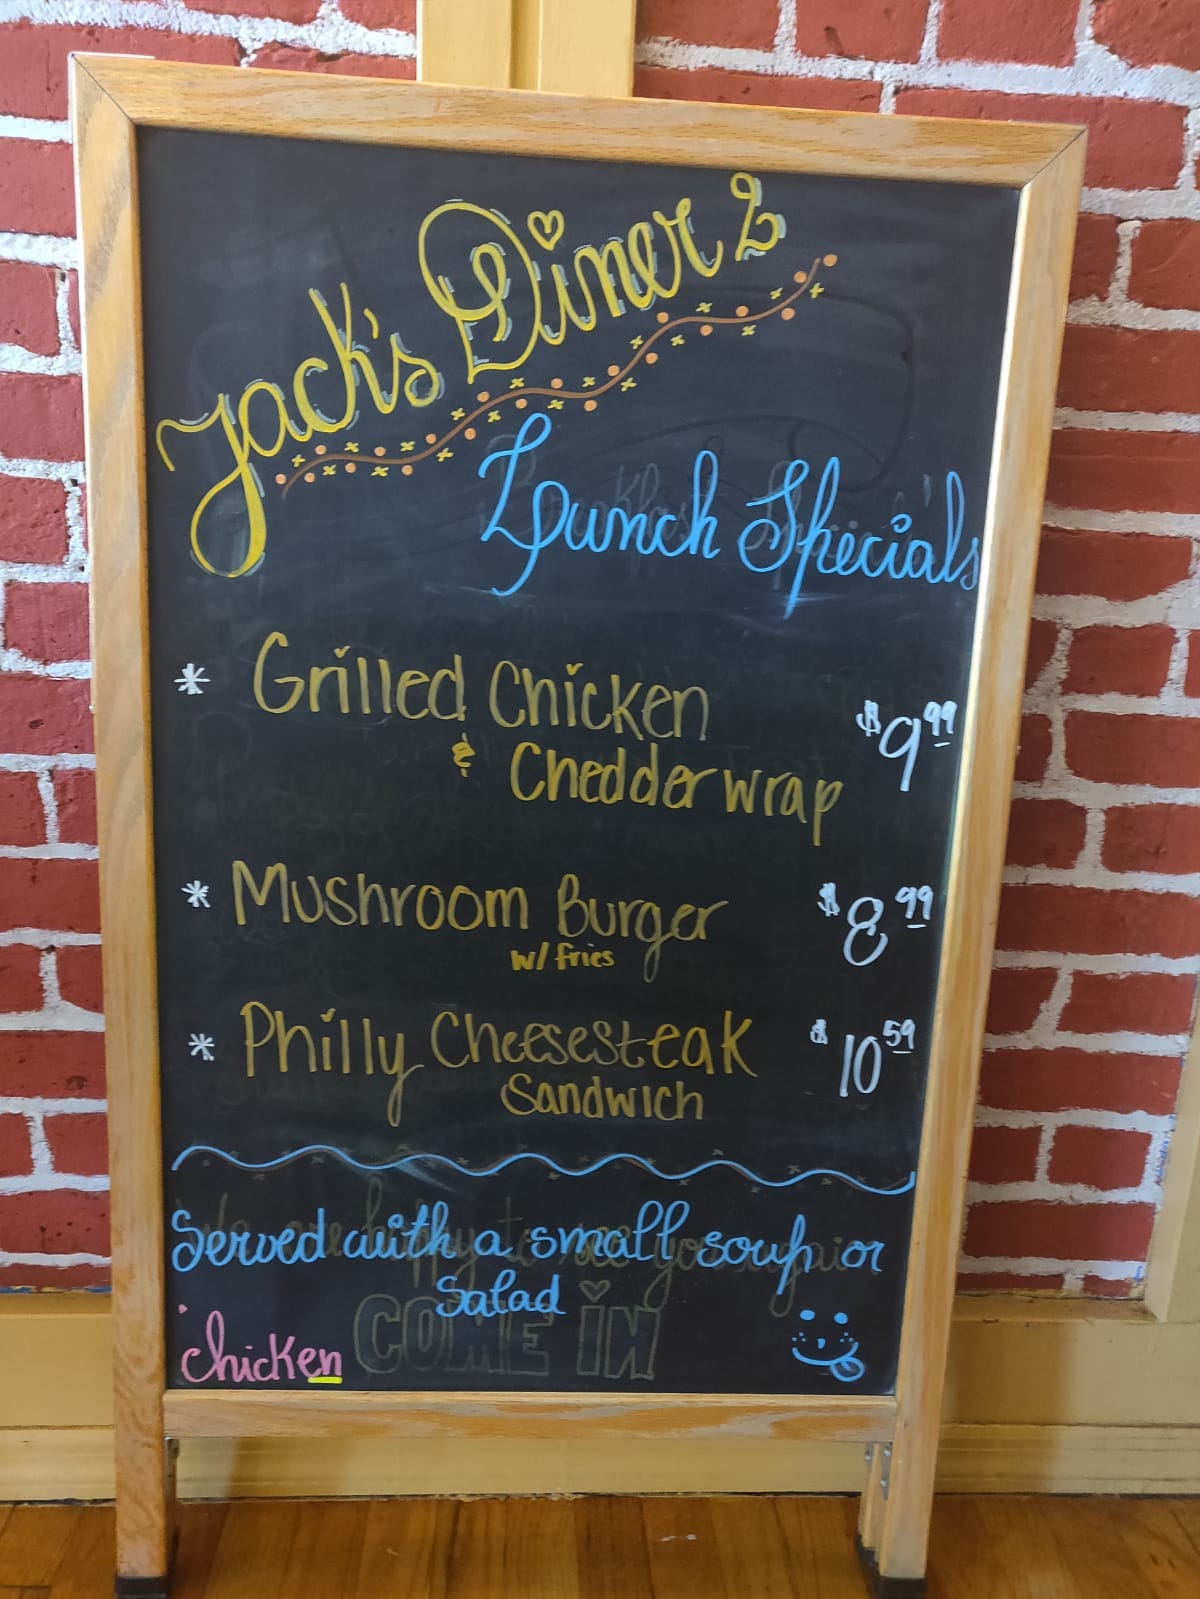 Jack's Diner 2
Lunch Specials
* Grilled Chicken
& Chedder wrap $9.99
* Mushroom Burger $8.99
w/ fries
* Philly Cheesesteak $10.59
Sandwich
Served with a small soup or
Salad
COME iN
chicken